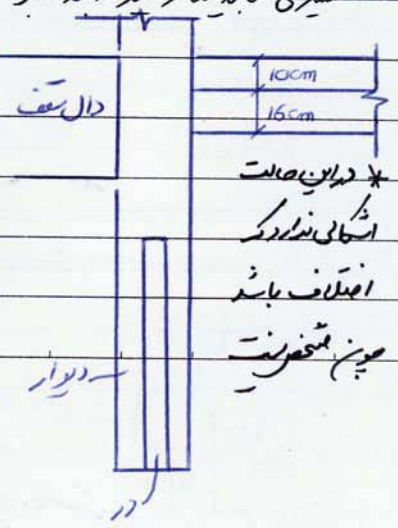 10cm
16cm
دال سقف
* در این حالت
اشکالی ندارد که
اختلاف باشد
چون مشخص نیست
دیوار
در